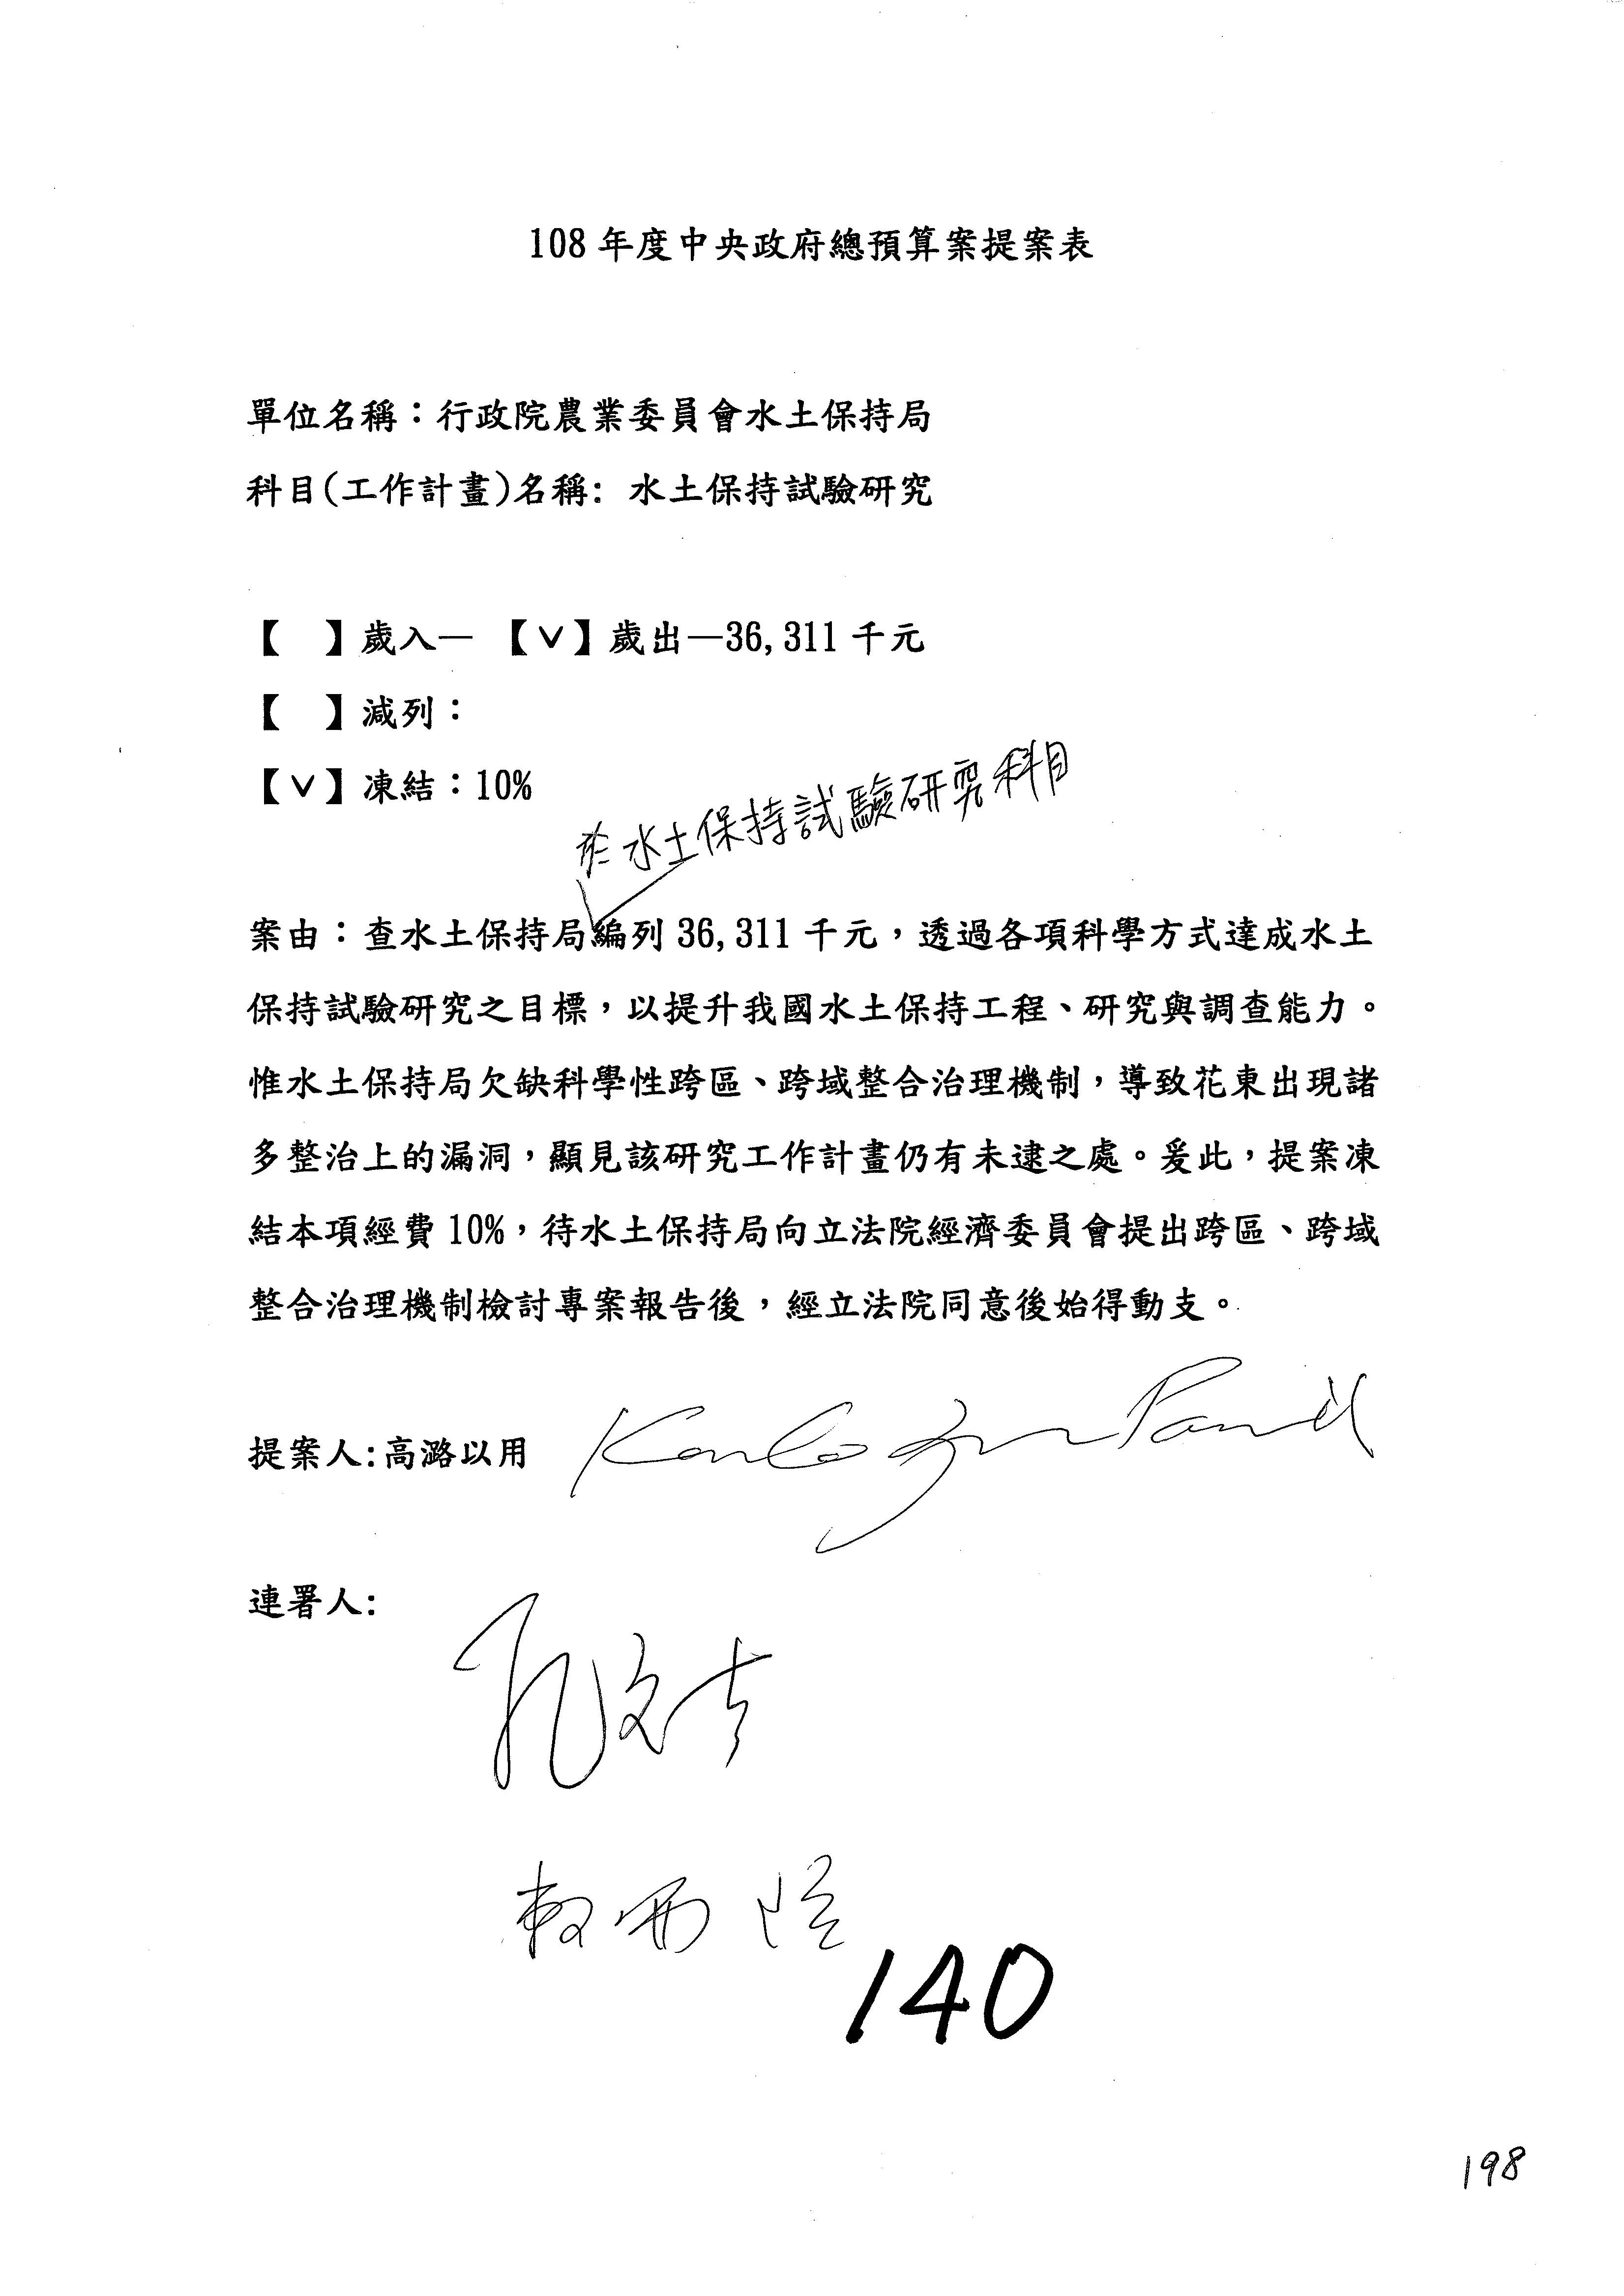 108 年度中央政府總預算案提案表
單位名稱：行政院農業委員會水土保持局
科目(工作計畫)名稱: 水土保持試驗研究
【　】歲入— 【∨】歲出—36,311 千元
【　】減列：
【∨】凍結：10%
於水土保持試驗研究科目
案由：查水土保持局編列 36,311 千元，透過各項科學方式達成水土
保持試驗研究之目標，以提升我國水土保持工程、研究與調查能力。
惟水土保持局欠缺科學性跨區、跨域整合治理機制，導致花東出現諸
多整治上的漏洞，顯見該研究工作計畫仍有未逮之處。爰此，提案凍
結本項經費 10%，待水土保持局向立法院經濟委員會提出跨區、跨域
整合治理機制檢討專案報告後，經立法院同意後始得動支。
提案人:高潞以用
連署人:
孔文吉
140
198